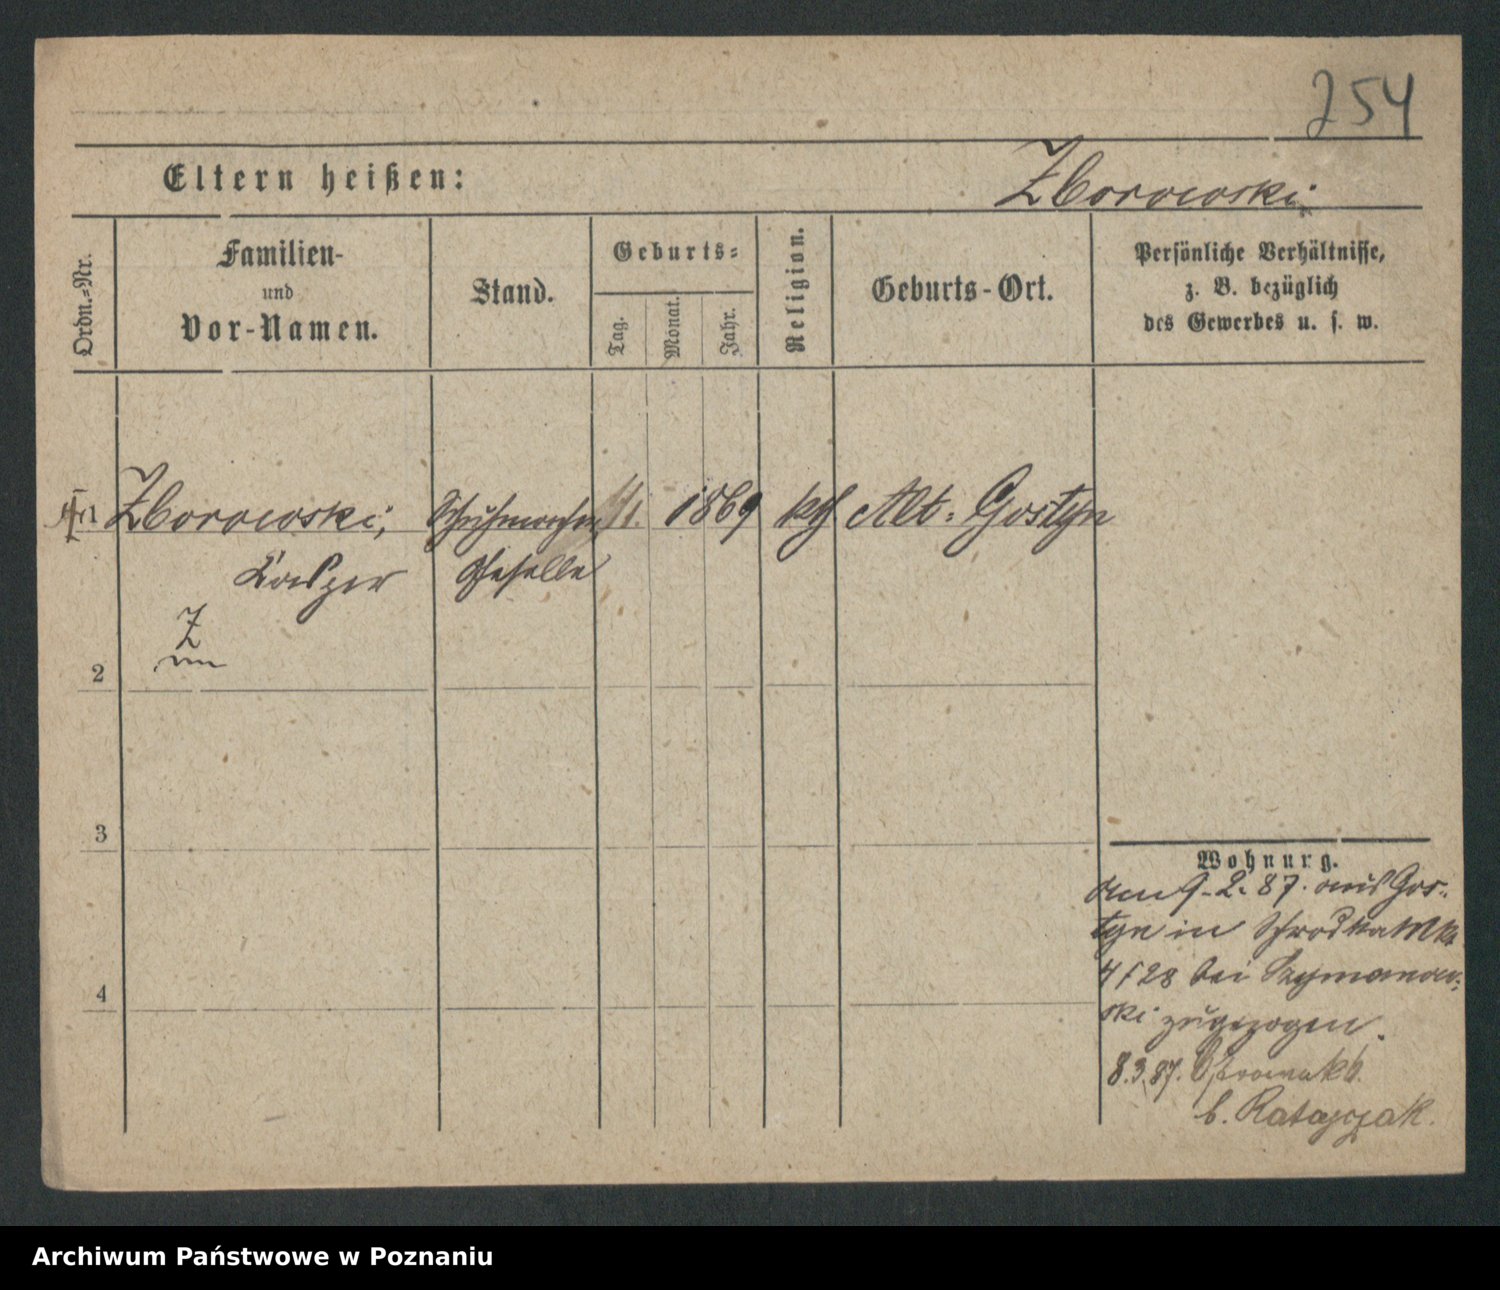 254
Eltern heißen:
Zborowski
Ordn.-Nr.
Familien-
und
Vor-Namen.
Stand.
Geburts-
Tag.
Monat.
Jahr.
Religion.
Geburts-Ort.
Persönliche Verhältnisse,
z. B. bezüglich
des Gewerbes u. s. w.
1 Zborowski, Schuhmacher 1869 kth Alt-Gostyn
Kasper Geselle
Z
2
3
4
Wohnung.
am 9.2.87. aus Gos-
tyn in Schrodka Mkt
4/28 bei Szymanow-
ski zugezogen.
8.3.87. Ostrowek 6.
b. Ratajczak.
Archiwum Państwowe w Poznaniu